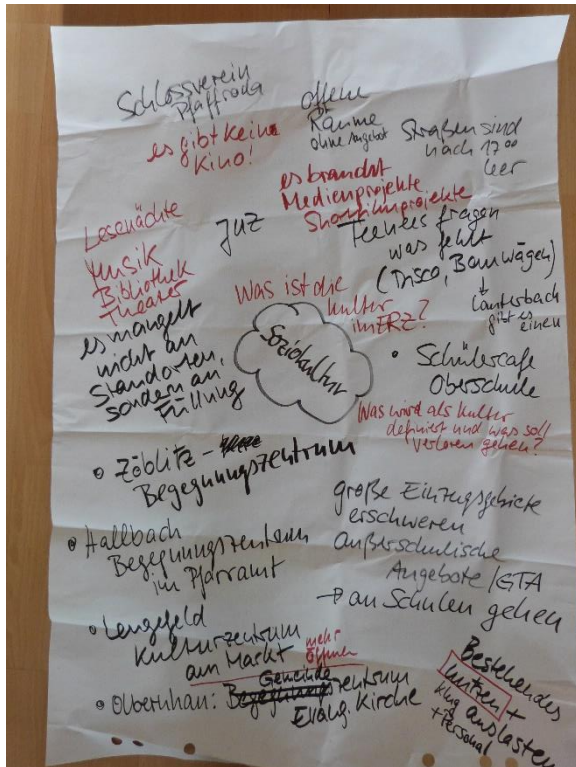 Schlossverein
Pfaffroda
es gibt keine
Kino!
offene
Räume
ohne Angebot
Straßen sind
nach 17⁰⁰
leer
es braucht
Medienprojekte
Shortfilmprojekte
Lesenächte
Musik
Bibliothek
Theater
JUZ
Teenees fragen
was fehlt
(Disco, Bauwägen)
Lauterbach
gibt es
einen
Was ist die
Kultur
im ERZ?
es mangelt
nicht an
Standorten,
sondern an
Füllung
Soziokultur
• Schülercafe
Oberschule
Was wird als Kultur
definiert und was soll
verloren gehen?
• Zöblitz –
Begegnungszentrum
• Hallbach
Begegnungszentrum
im Pfarramt
große Einzugsgebiete
erschweren
außerschulische
Angebote/GTA
→ an Schulen gehen
• Lengefeld
Kulturzentrum
am Markt
mehr
öffnen
• Olbernhau: Gemeindezentrum
Evang. Kirche
Bestehendes
nutzen +
klug auslasten
+ Personal